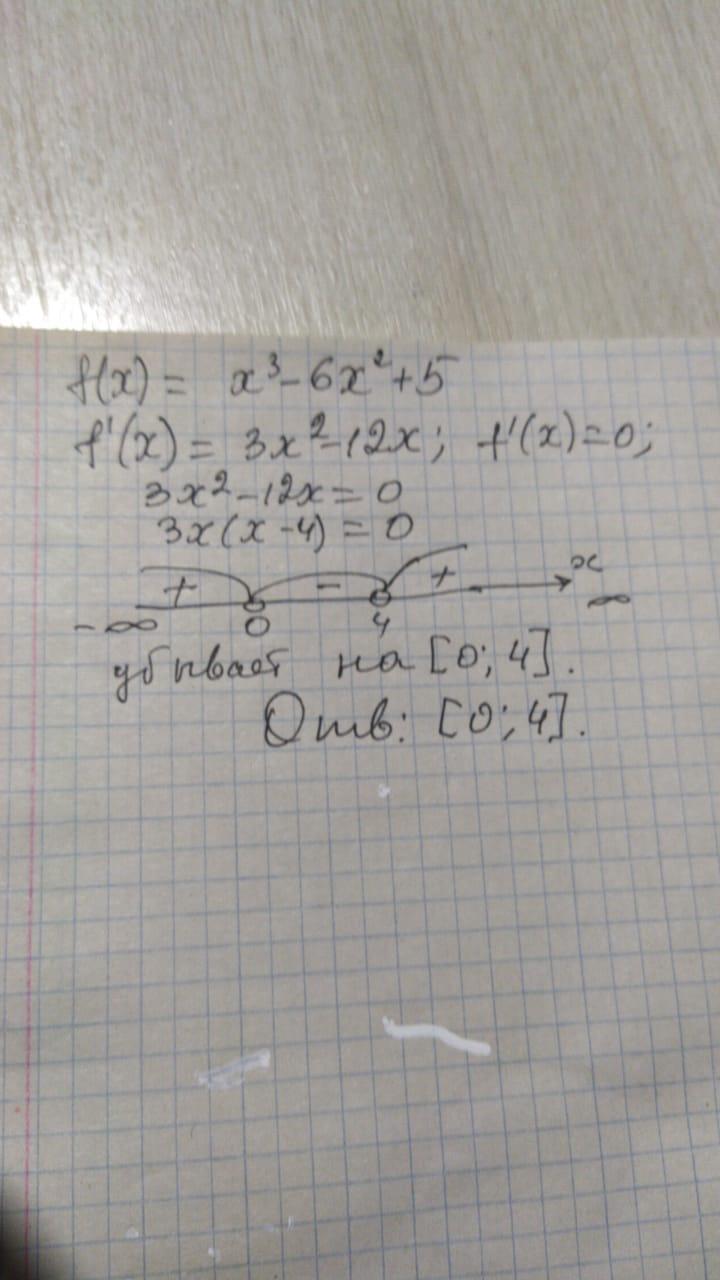 f(x) = x³-6x²+5
f'(x) = 3x²-12x; f'(x)=0;
3x²-12x=0
3x(x-4)=0
+ - + x
-∞ 0 4 ∞
убывает на [0; 4].
Отв: [0; 4].